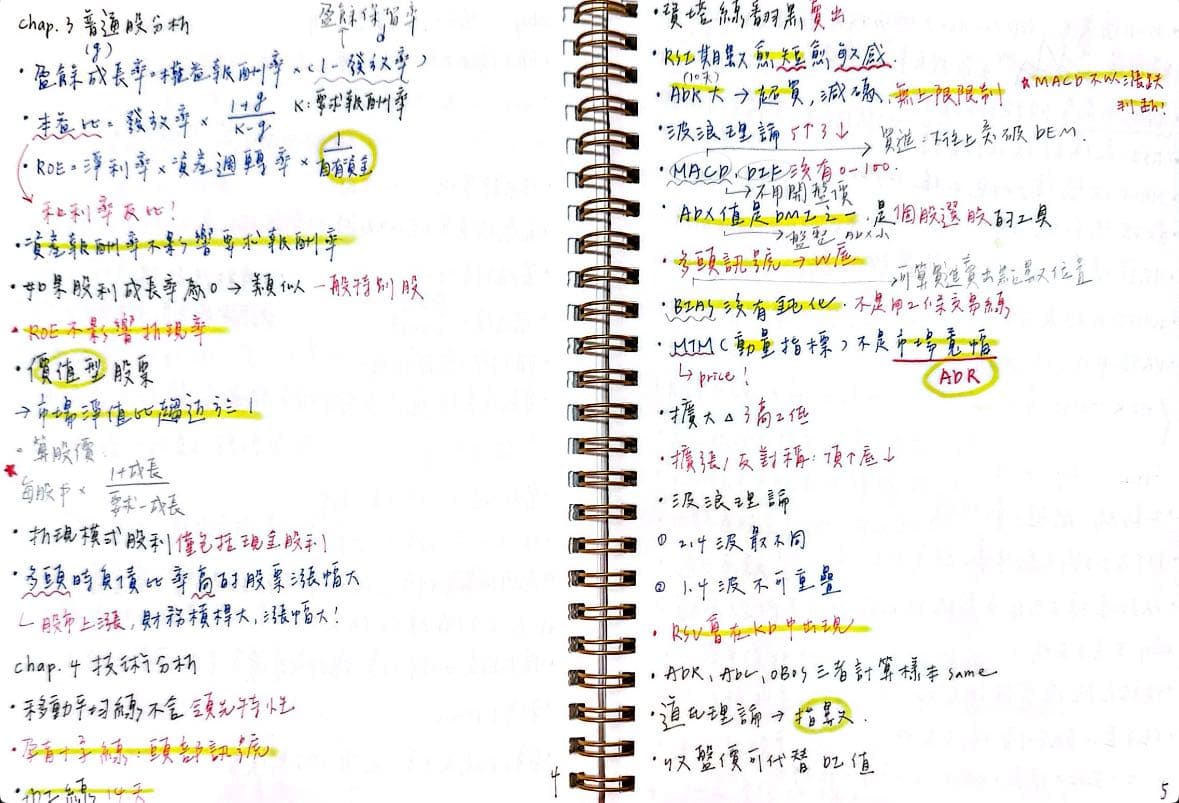 chap. 3 普通股分析
盈餘保留率
(g)
• 盈餘成長率=權益報酬率 × (1-發放率)
• 本益比 = 發放率 × 1+g / K-g K:要求報酬率
• ROE = 淨利率 × 資產週轉率 × 1 / 自有資金
和利率反比!
• 資產報酬率不影響要求報酬率
• 如果股利成長率為0 → 類似一般特別股
• ROE不影響折現率
• 價值型股票
→ 市場淨值比趨近於1!
◦ 算股價:
★ 每股 × 1+成長 / 要求-成長
• 折現模式股利僅包括現金股利
• 多頭時負債比率高的股票漲幅大
└ 股市上漲,財務槓桿大,漲幅大!
chap. 4 技術分析
• 移動平均線不含領先特性
• 孕育十字線:頭部訊號
線 14天
4
• 寶塔線翻黑賣出
• RSI期數愈短愈敏感.
(10天)
• ADR大 → 超買,減碼,無上限限制
★ MACD不以漲跌判斷!
• 波浪理論 5↑3↓
買進:往上突破DEM.
• MACD, DIF 沒有0-100
↳ 不用開盤價
• ADX值是DMI之一,是個股選股的工具
→ 盤整 ADX小
• 多頭訊號 → W底
→ 可算買進賣出點數位置
• BIAS沒有鈍化.不是用2條交易線
• MTM (動量指標) 不是市場寬幅
↳ price!
ADR
• 擴大△ 3高2低
• 擴張/反對稱:頂↑底↓
• 波浪理論
① 2.4波最不同
② 1.4波不可重疊
• RSV會在KD中出現
• ADR, ADL, OBOS三者計算樣本same
• 道氏理論 → 指數.
• 收盤價可代替DI值
5